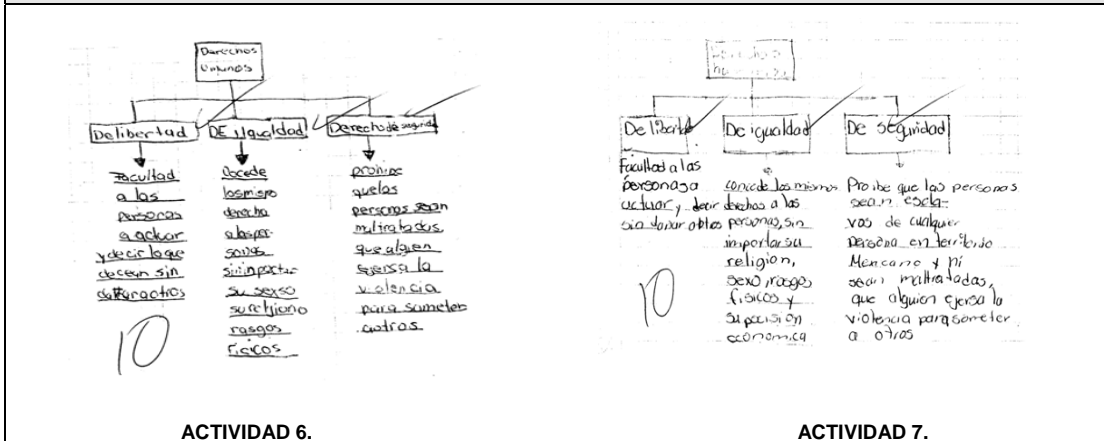 Derechos
umunos
De libertad
DE igualdad
Derecho de
Facultad
a las
personas
a actuar
y decir lo que
deceen sin
dañar a otros
10
los mismo
derecho
a las per-
sonas
sin inportar
su sexso
su relijiono
rasgos
ficicos
prohive
que las
personas sean
maltratados
que alguien
egersa la
violencia
para someter
a otros
ACTIVIDAD 6.
De libertad
De igualdad
De seguridad
Facultad a las
personas a
actuar y decir
sin dañar a otros
10
concede los mismos
derechos a las
personas, sin
importar su
religion,
sexo, rasgos
fisicos y
su posision
economica
Proibe que las personas
sean escla-
vos de cualquier
persona en territorio
Mexicano y ni
sean maltratadas,
que alguien ejersa la
violencia para someter
a otros
ACTIVIDAD 7.